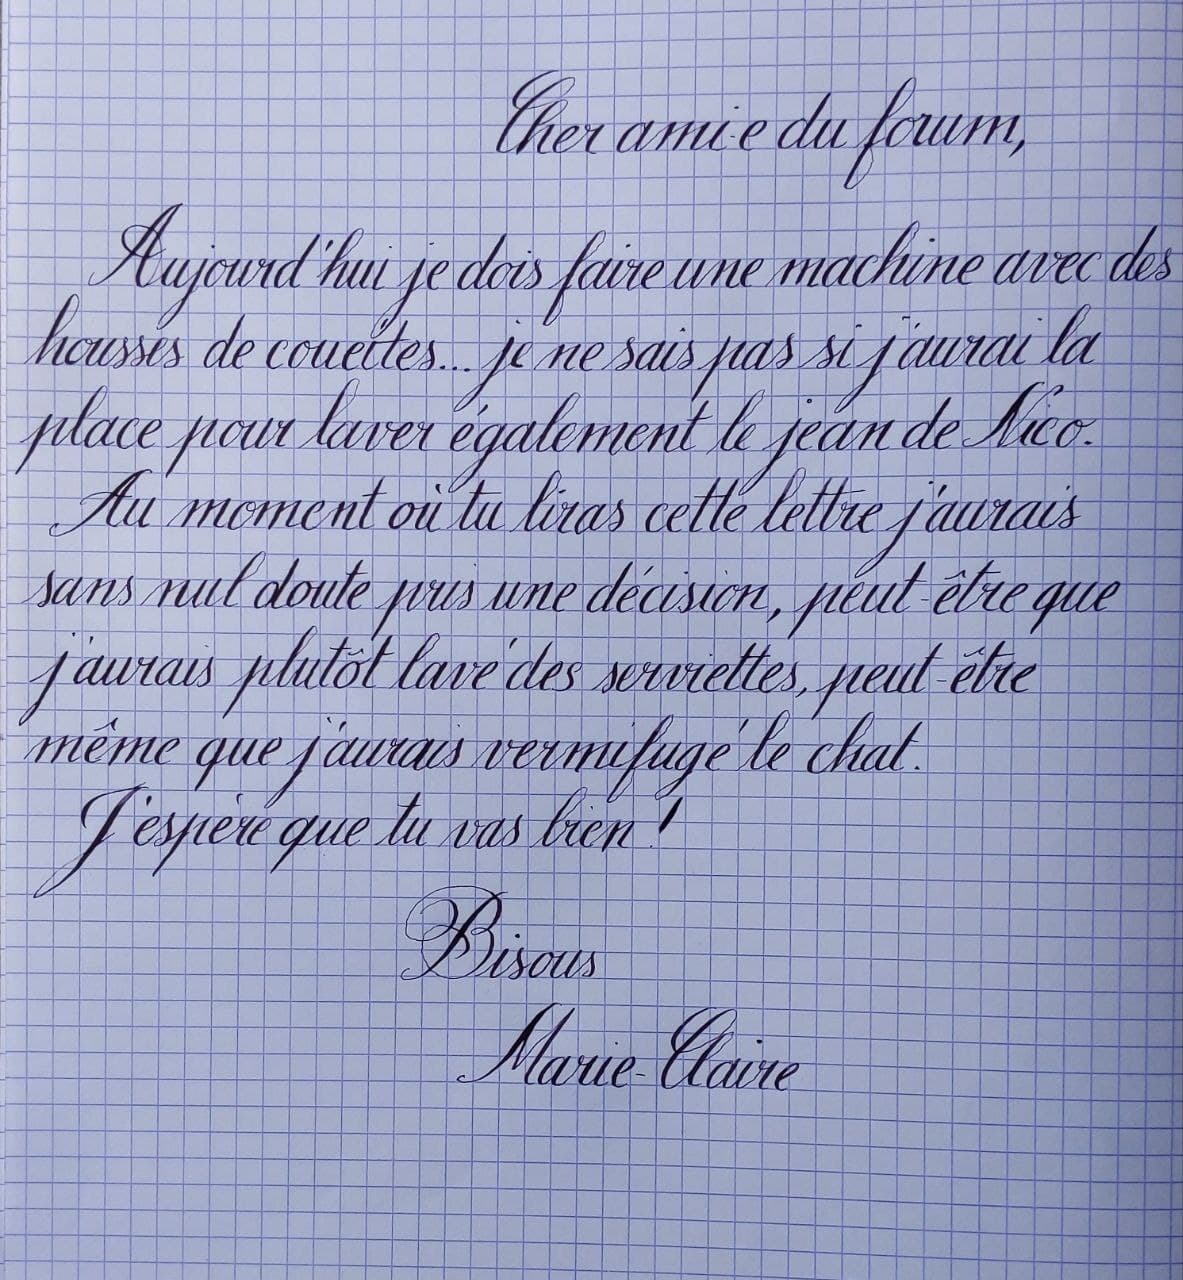 Cher ami·e du forum,
Aujourd'hui je dois faire une machine avec des
housses de couettes... je ne sais pas si j'aurai la
place pour laver également le jean de Nico.
Au moment où tu liras cette lettre j'aurais
sans nul doute pris une décision, peut-être que
j'aurais plutôt lavé des serviettes, peut-être
même que j'aurais vermifugé le chat.
J'espère que tu vas bien !
Bisous
Marie-Claire